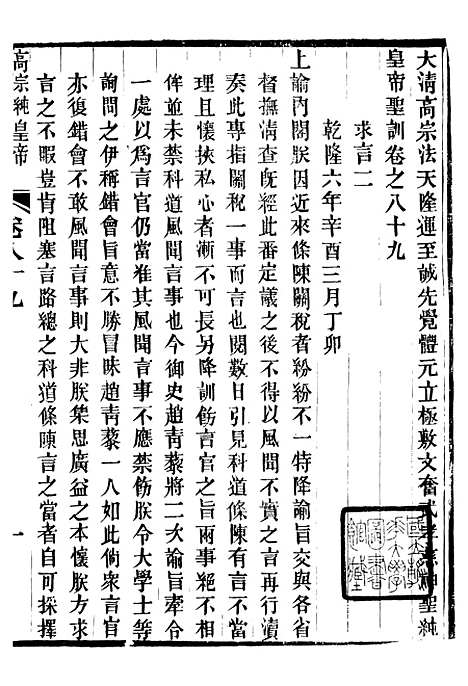 大清高宗法天隆運至誠先覺體元立極敷文奮武孝慈神聖純
皇帝聖訓卷之八十九
求言二
乾隆六年辛酉三月丁卯
上諭內閣朕因近來條陳關稅者紛紛不一特降諭旨交與各省
督撫淸查旣經此番定議之後不得以風聞不實之言再行瀆
奏此專指關稅一事而言也閱數日引見科道條陳有言不當
理且懷挾私心者漸不可長另降訓飭言官之旨兩事絕不相
侔並未禁科道風聞言事也今御史趙靑藜將二次諭旨牽合
一處以爲言官仍當准其風聞言事不應禁飭朕令大學士等
詢問之伊稱錯會旨意不勝冒昧趙靑藜一人如此倘衆言官
亦復錯會不敢風聞言事則大非朕集思廣益之本懷朕方求
言之不暇豈肯阻塞言路總之科道條陳言之當者自可採擇
高宗純皇帝
卷八十九
一